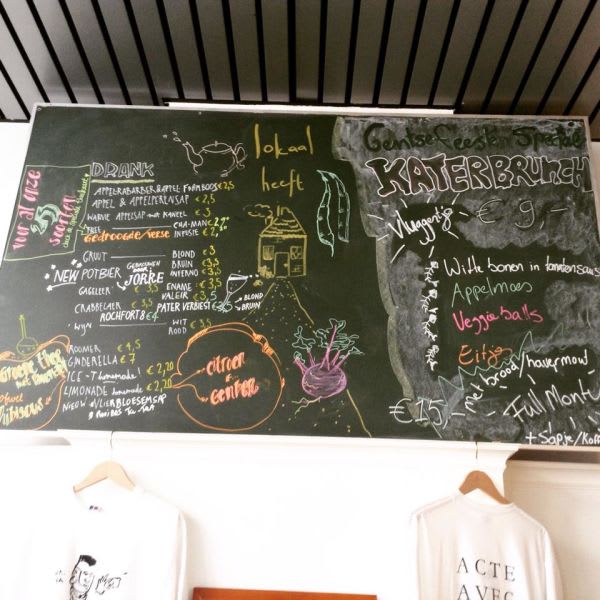 voor al onze
soorten
DRANK
APPELRABARBER & APPEL FRAMBOOS € 2,5
APPEL & APPELPERENSAP € 2,5
WARME APPELSAP met KANEEL € 3
THEE CHA-MANE
Gedroogde/verse INFUSIE
GRUUT BLOND € 3
BRUIN € 3,5
INFERNO € 3,5
NEW POTBIER
GEBROUWEN DOOR JORRE
GAGELEER € 3,5
ENAME € 3,5
VALEIR € 3,5
CRABBELAER € 3,5
PATER VERBIEST € 3,5
BLOND
BRUIN
ROCHFORT 8 €4
WIJN WIT
ROOD € 3,5
ROOMER € 4,5
CINDERELLA € 7
ICE-T homemade! € 2,20
LIMONADE homemade € 2,20
NIEUW VLIERBLOESEMSAP
& ROOIBOS
Groene thee
Hibiscus
citroen
&
Gember
lokaal
heeft
Gentsefeesten Special
KATERBRUNCH
Vlaagentje € 9,-
Witte bonen in tomatensaus
Appelmoes
Veggieballs
Eitje
met brood/havermout
€15,- Full Monty
+ Sapje/Koff
ACTE
AVEC